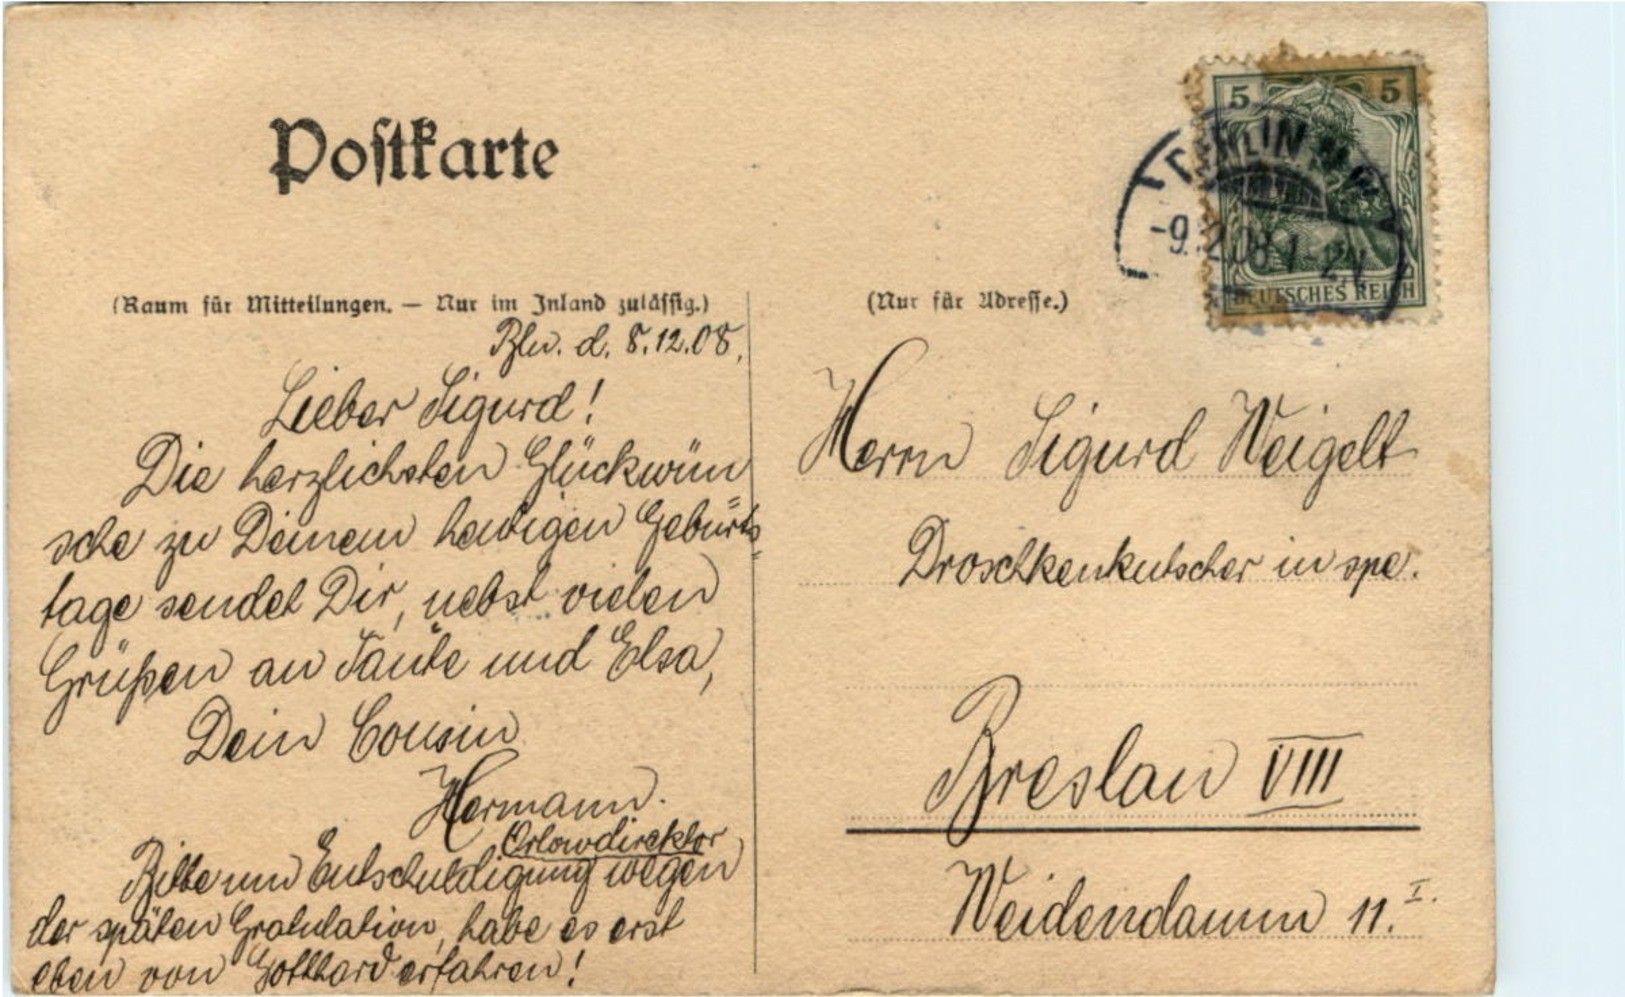 Postkarte
(Raum für Mitteilungen. — Nur im Inland zulässig.)
(Nur für Adresse.)
5 5
DEUTSCHES REICH
BERLIN
-9.12.08.1-2V.
Bln. d. 8.12.08.
Lieber Sigurd!
Die herzlichsten Glückwün
sche zu Deinem heutigen Geburts=
tage sendet Dir, nebst vielen
Grüßen an Tante und Elsa,
Dein Cousin
Hermann.
Orlowdirektor
Bitte um Entschuldigung wegen
der späten Gratulation, habe es erst
eben von Gotthard erfahren!
Herrn Sigurd Weigelt
Droschkenkutscher in spe.
Breslau VIII
Weidendamm 11. I.